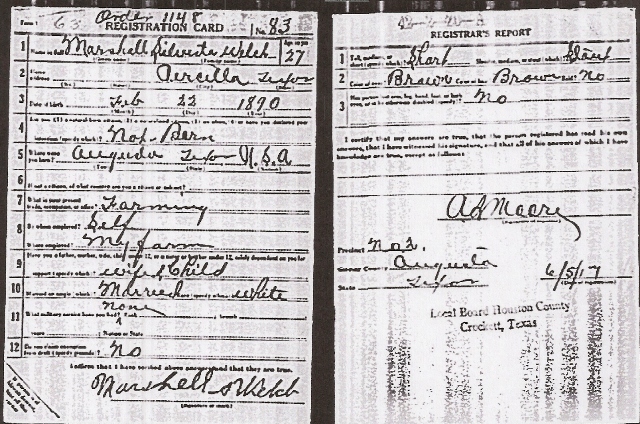 Form 1 63 Order 1148 No. 83
REGISTRATION CARD
1 Name in full Marshall Silvester Welch Age in yrs 27
(Given name) (Family name)
2 Home address Percilla Texas
(No.) (Street) (City) (State)
3 Date of birth Feb 22 1890
(Month) (Day) (Year)
4 Are you (1) a natural born citizen, (2) a naturalized citizen, (3) an alien, (4) or have you declared your
intention (specify which)? Nat. Born
5 Where were you born? Augusta Texas U.S.A
(Town) (State) (Nation)
6 If not a citizen, of what country are you a citizen or subject?
7 What is your present trade, occupation, or office? Farming
8 By whom employed? Self
Where employed? My farm
9 Have you a father, mother, wife, child under 12, or a sister or brother under 12, solely dependent on you for
support (specify which)? wife & Child
10 Married or single (which)? Married Race (specify which)? White
11 What military service have you had? Rank None branch
years Nation or State
12 Do you claim exemption from draft (specify grounds)? No
I affirm that I have verified above answers and that they are true.
Marshall S Welch
(Signature or mark)
REGISTRAR'S REPORT
1 Tall, medium, or short (specify which)? Short Slender, medium, or stout (which)? Stout
2 Color of eyes? Brown Color of hair? Brown Bald? No
3 Has person lost arm, leg, hand, foot, or both eyes, or is he otherwise disabled (specify)? No
I certify that my answers are true, that the person registered has read his own
answers, that I have witnessed his signature, and that all of his answers of which I have
knowledge are true, except as follows:
Precinct No 2.
City or County Augusta
State Texas 6/5/17
(Date of registration)
Local Board Houston County
Crockett, Texas